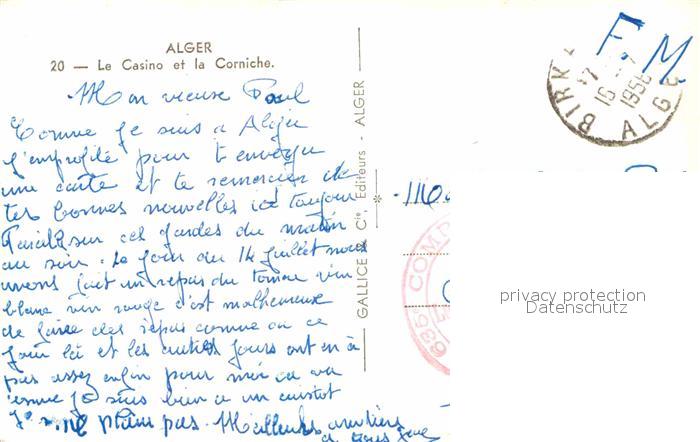 ALGER
20 — Le Casino et la Corniche.
Mon vieuse Paul
Comme je suis a Alger
j'enprofite pour t'envoyer
une carte et te remercier de
tes bonnes nouvelles ici toujour
Pareil sur ces gardes du matin
au soir. Le jour du 14 juillet nous
avons fait un repas du tonnerre vin
blanc vin rouge c'est malheureuse
de faire des repas comme ça ce
jour là et les autres jours ont en à
pas assez enfin pour moi ça va
comme je suis bien a un cuistot
Je me plaim pas. Meilleurs
a tous
GALLICE & Cie, Editeurs - ALGER
F. M
BIRK
17
16 -7
1956
ALGE
635e COMP
privacy protection
Datenschutz